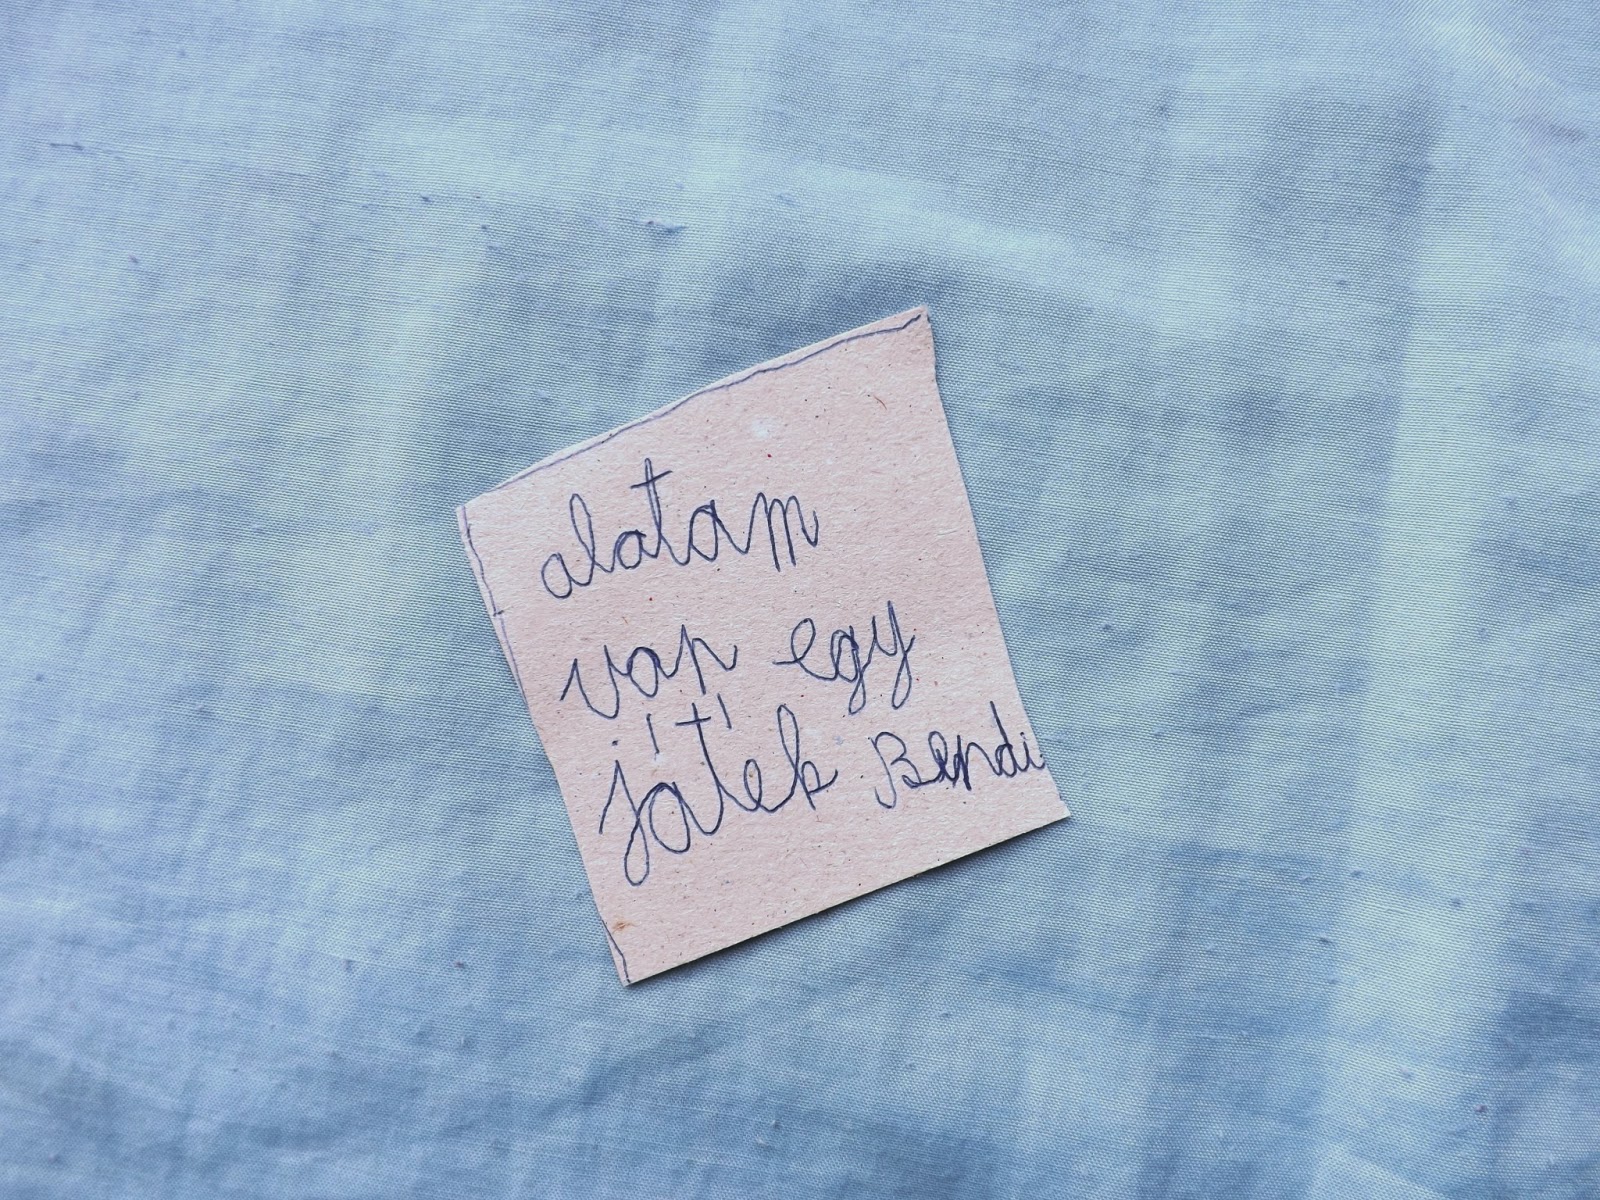 alatam
van egy
játék Bendi